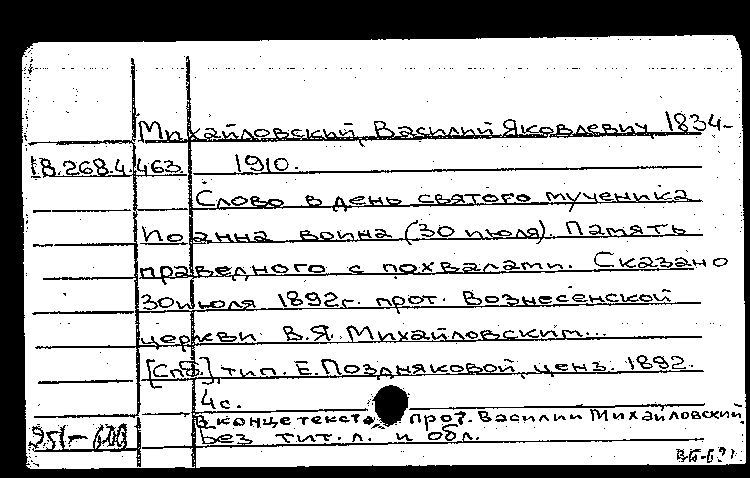 Михайловский, Василий Яковлевич, 1834-
18.268.4.463 1910.
Слово в день святого мученика
Иоанна воина (30 июля). Память
праведного с похвалами. Сказано
30 июля 1892г. прот. Вознесенской
церкви В.Я. Михайловским...
[Спб.], тип. Е. Поздняковой, ценз. 1892.
4 с.
В конце текста: прот. Василий Михайловский
Без тит. л. и обл.